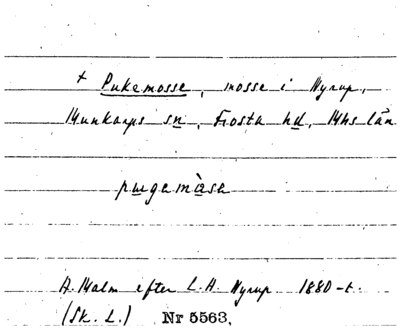 + Pukemosse, mosse i Nyrup,
Munkarps sn, Frosta hd, Mhs län
pugemåse
A. Malm efter L. A. Nyrup 1880-t.
(Sk. L.) Nr 5563.